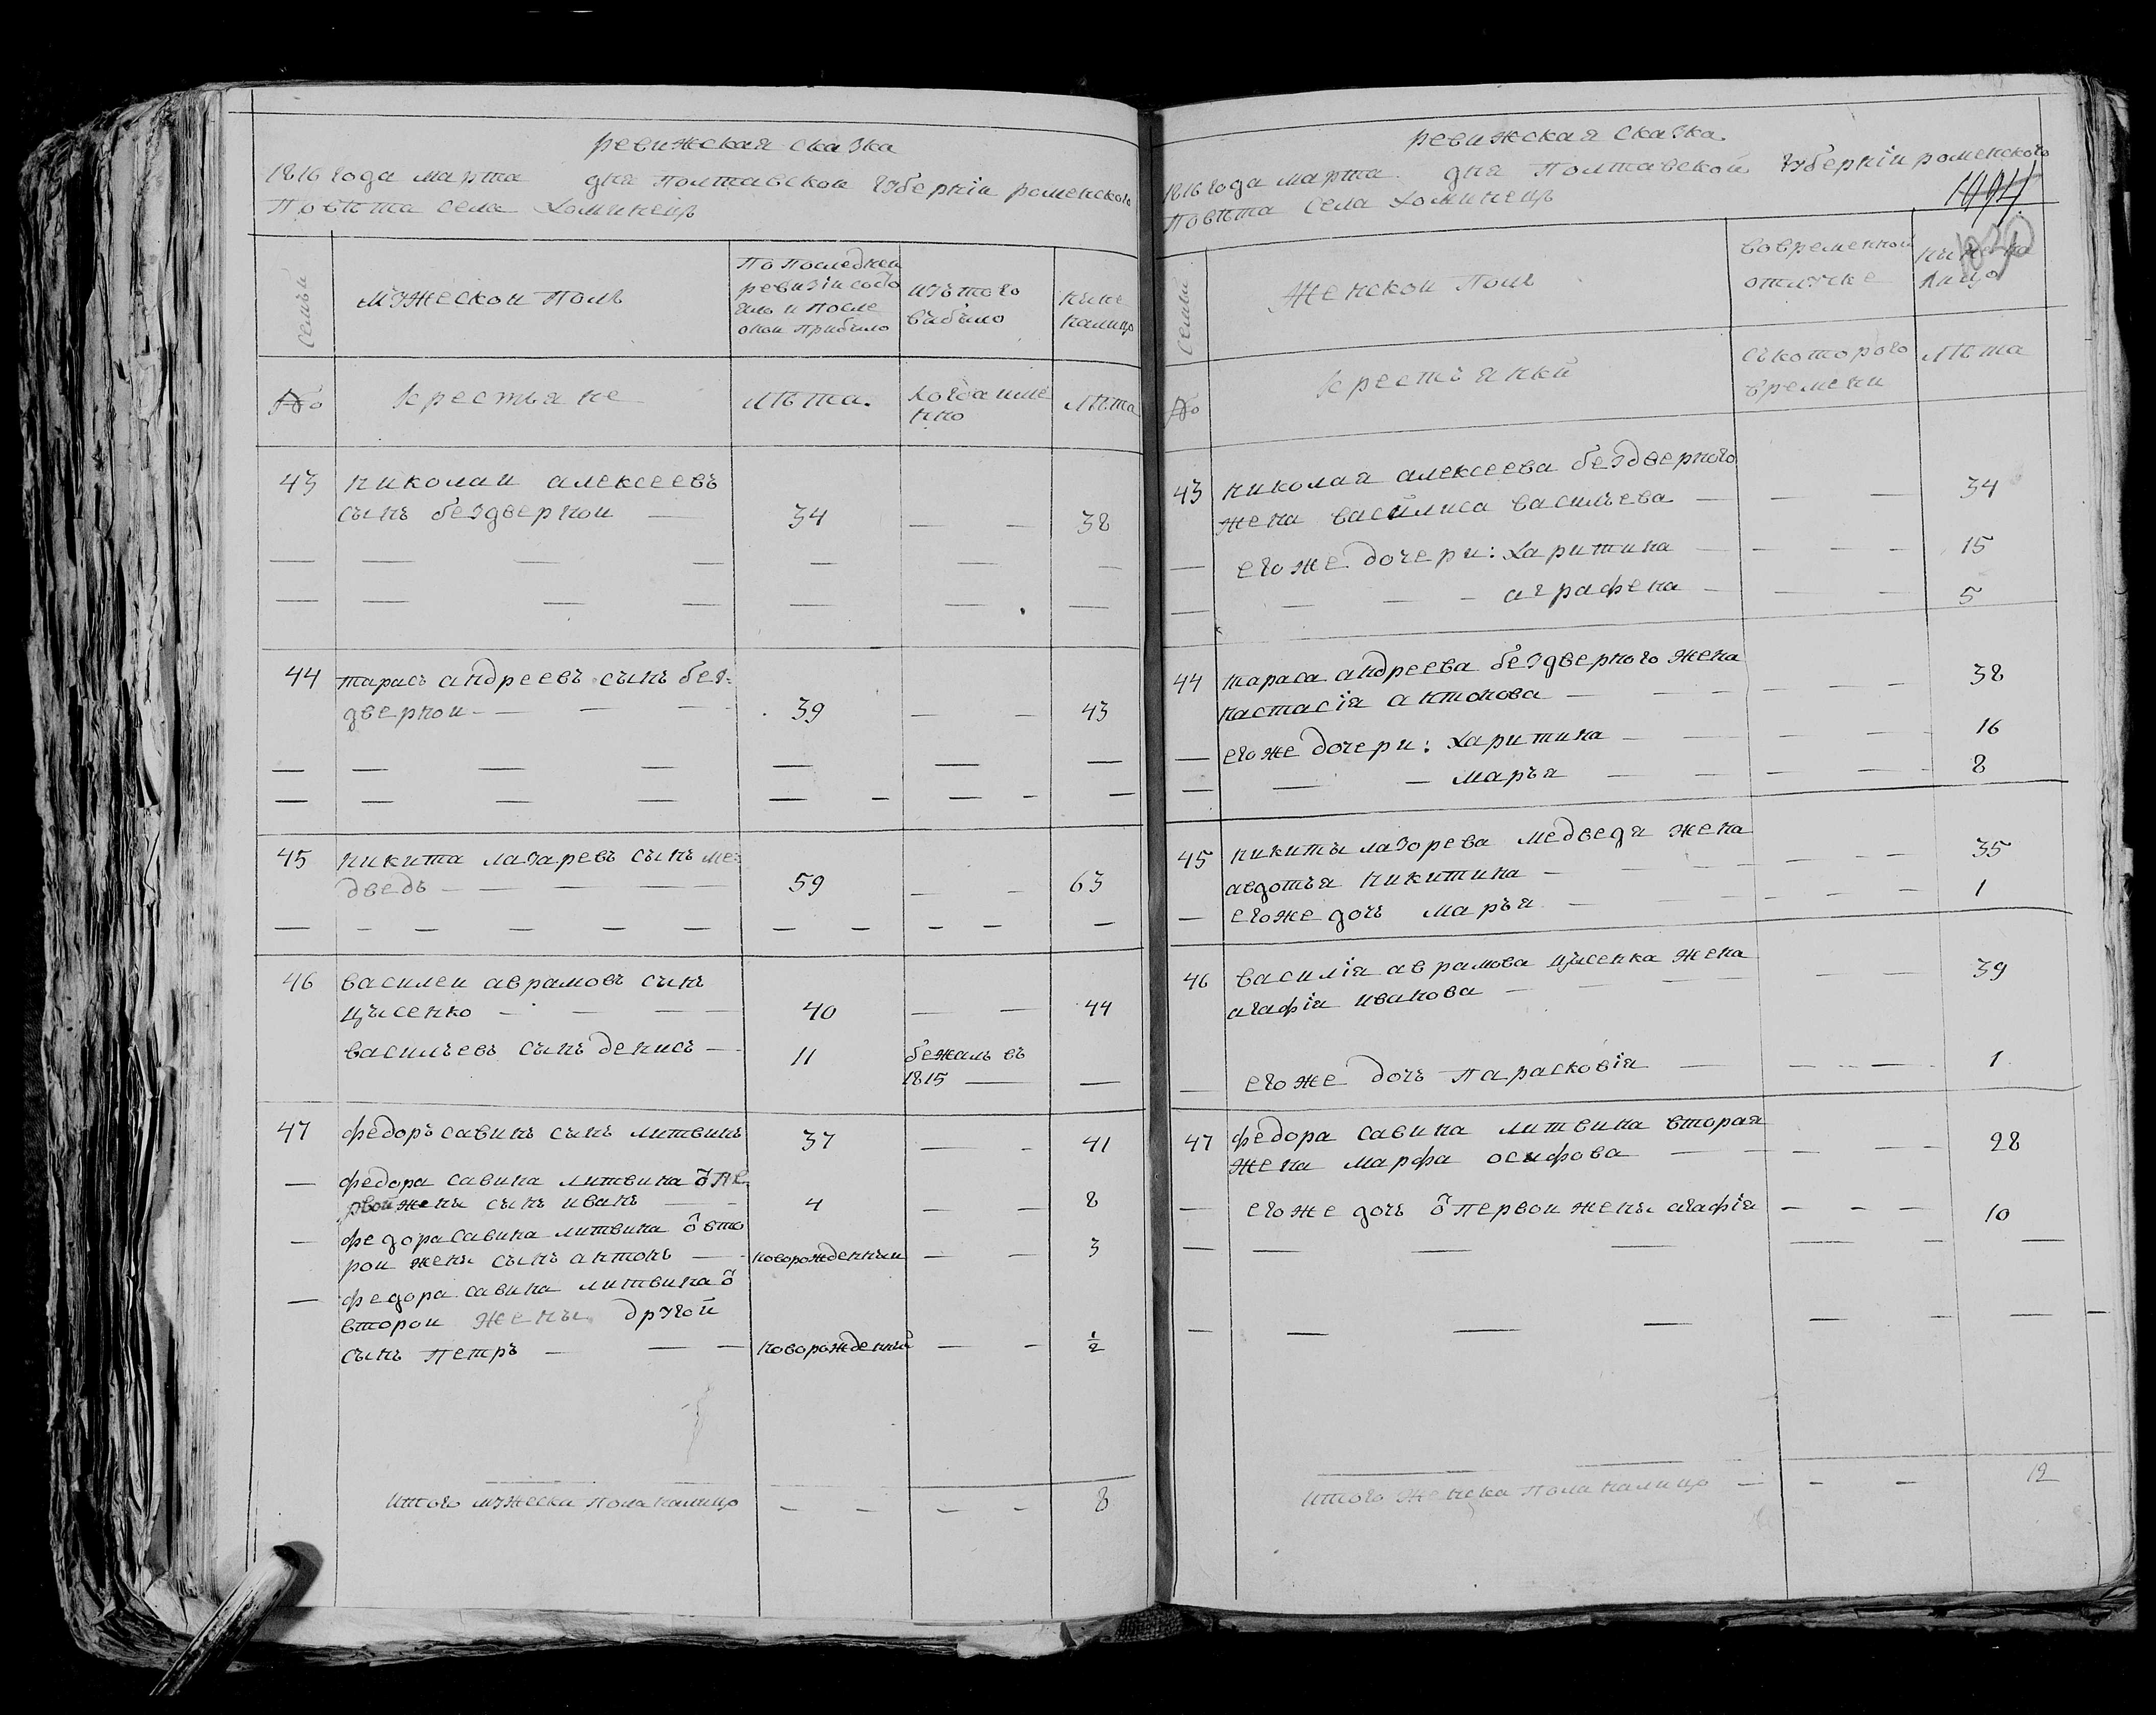 ревижская сказка
1816 года марта дня Полтавской губернiи роменского
Повѣта села Хоминецъ
семьи
мужеской полъ
По последней
ревизiи состо
яло и после
оной прибыло
изъ того
выбыло
ныне
налицо
№
крестьяне
лѣта.
когда имен
нно
лѣта
43 николай алексеевъ
сынъ бездверной — 34 — — 38
— — — — — — —
— — — — — — —
44 тарасъ андреевъ сынъ без-
дверной — — — 39 — — 43
— — — — — — —
— — — — — — — — — —
45 никита лазаревъ сынъ ме-
дведь — — — — 59 — — 63
— — — — — — — — — — —
46 василей аврамовъ сынъ
цысенко — — — — 40 — — 44
васильевъ сынъ денисъ — 11 бежалъ въ
1815 — —
47 федоръ савинъ сынъ литвинъ 37 — - 41
— федора савина литвина ѿ пе
рвой жены сынъ иванъ — - 4 — — 8
— федора савина литвина ѿ вто
рой жены сынъ антонъ — - новорожденный — — 3
— федора савина литвина ѿ
второй жены другой
сынъ петръ — — — новорожденный — - 1/2
итого мужеска пола налицо — — — — 8
ревижская сказка.
1816 года марта. дня Полтавской губернiи роменского
Повѣта села Хоминецъ
1494
семьи
женской полъ
во временной
отлучке
ныне на
лицо
№
крестьянки
съ которого
времени
лѣта
43 николая алексеева бездверного
жена василиса васильева — — — 34
— его же дочери: харитина — — — — 15
— — — - аграфена - — — 5
44 тараса андреева бездверного жена
настасiя антонова — — - — - 38
— его же дочери: харитина — — — - 16
— — — марья — — — — - 8
45 никиты лазорева медведя жена
авдотья никитина — — — — - - 35
— его же дочь марья — — - — - — 1
46 василiя аврамова цысенка жена
агафiя иванова — — — — — 39
— его же дочь параскѣвiя — — — — 1
47 федора савина литвина вторая
жена марфа осифова — — — — — 28
— его же дочь ѿ первой жены агафiя — - — 10
— — — — — — - —
— — — — — — — —
итого женска пола налицо — - — 12